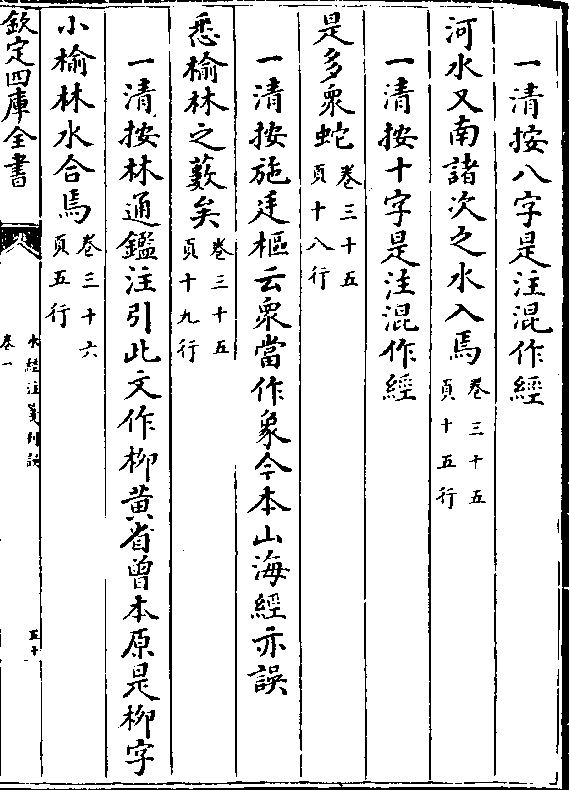 一清按八字是注混作經
河水又南諸次之水入焉卷三十五頁十五行
一清按十字是注混作經
是多衆蛇卷三十五頁十八行
一清按施廷樞云衆當作象今本山海經亦誤
悉榆林之藪矣卷三十五頁十九行
一清按林通鑑注引此文作柳黄省曾本原是柳字
小榆林水合焉卷三十六頁五行
欽定四庫全書
水經注箋刊誤
卷一
五十